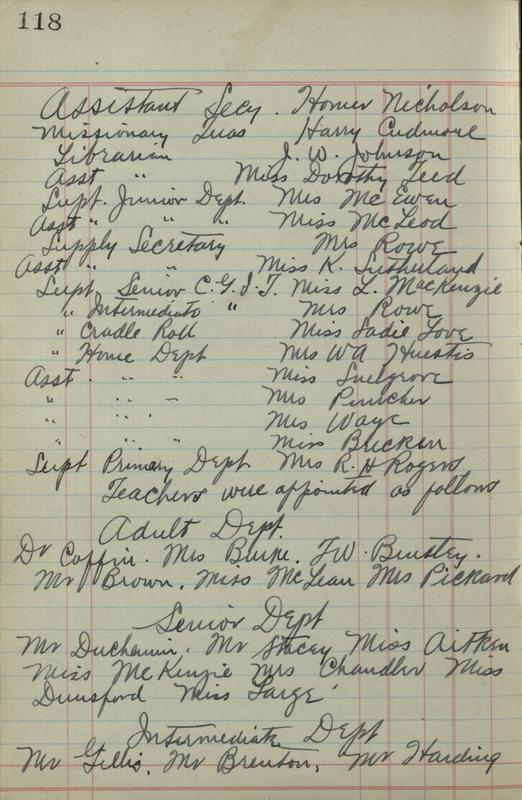 118
Assistant Secy. Homer Nicholson
Missionary Treas Harry Cudmore
Librarian J. W. Johnson
Asst " Miss Dorothy Teed
Supt. Junior Dept. Mrs McEwen
Asst " " " Miss McLeod
Supply Secretary Mrs Rowe
Asst " " Miss K. Sutherland
Supt. Senior C.G.I.T. Miss L. MacKenzie
" Intermediate " Mrs Rowe
" Cradle Roll Miss Sadie Love
" Home Dept Mrs WA Huestis
Asst " " Miss Snelgrove
" " " Mrs Pinicher
" " " Mrs Waye
" " " Miss Bricken
Supt Primary Dept Mrs R. H Rogers
Teachers were appointed as follows
Adult Dept.
Dr Coffin. Mrs Burke. F.W. Binstey.
Mr Brown. Miss McLean Mrs Pickard
Senior Dept
Mr Duchemin. Mr Stacey Miss Aitken
Miss McKenzie Mrs Chandler Miss
Dunsford Miss Large
Intermediate Dept
Mr Gillis. Mr Brenton, Mr Harding